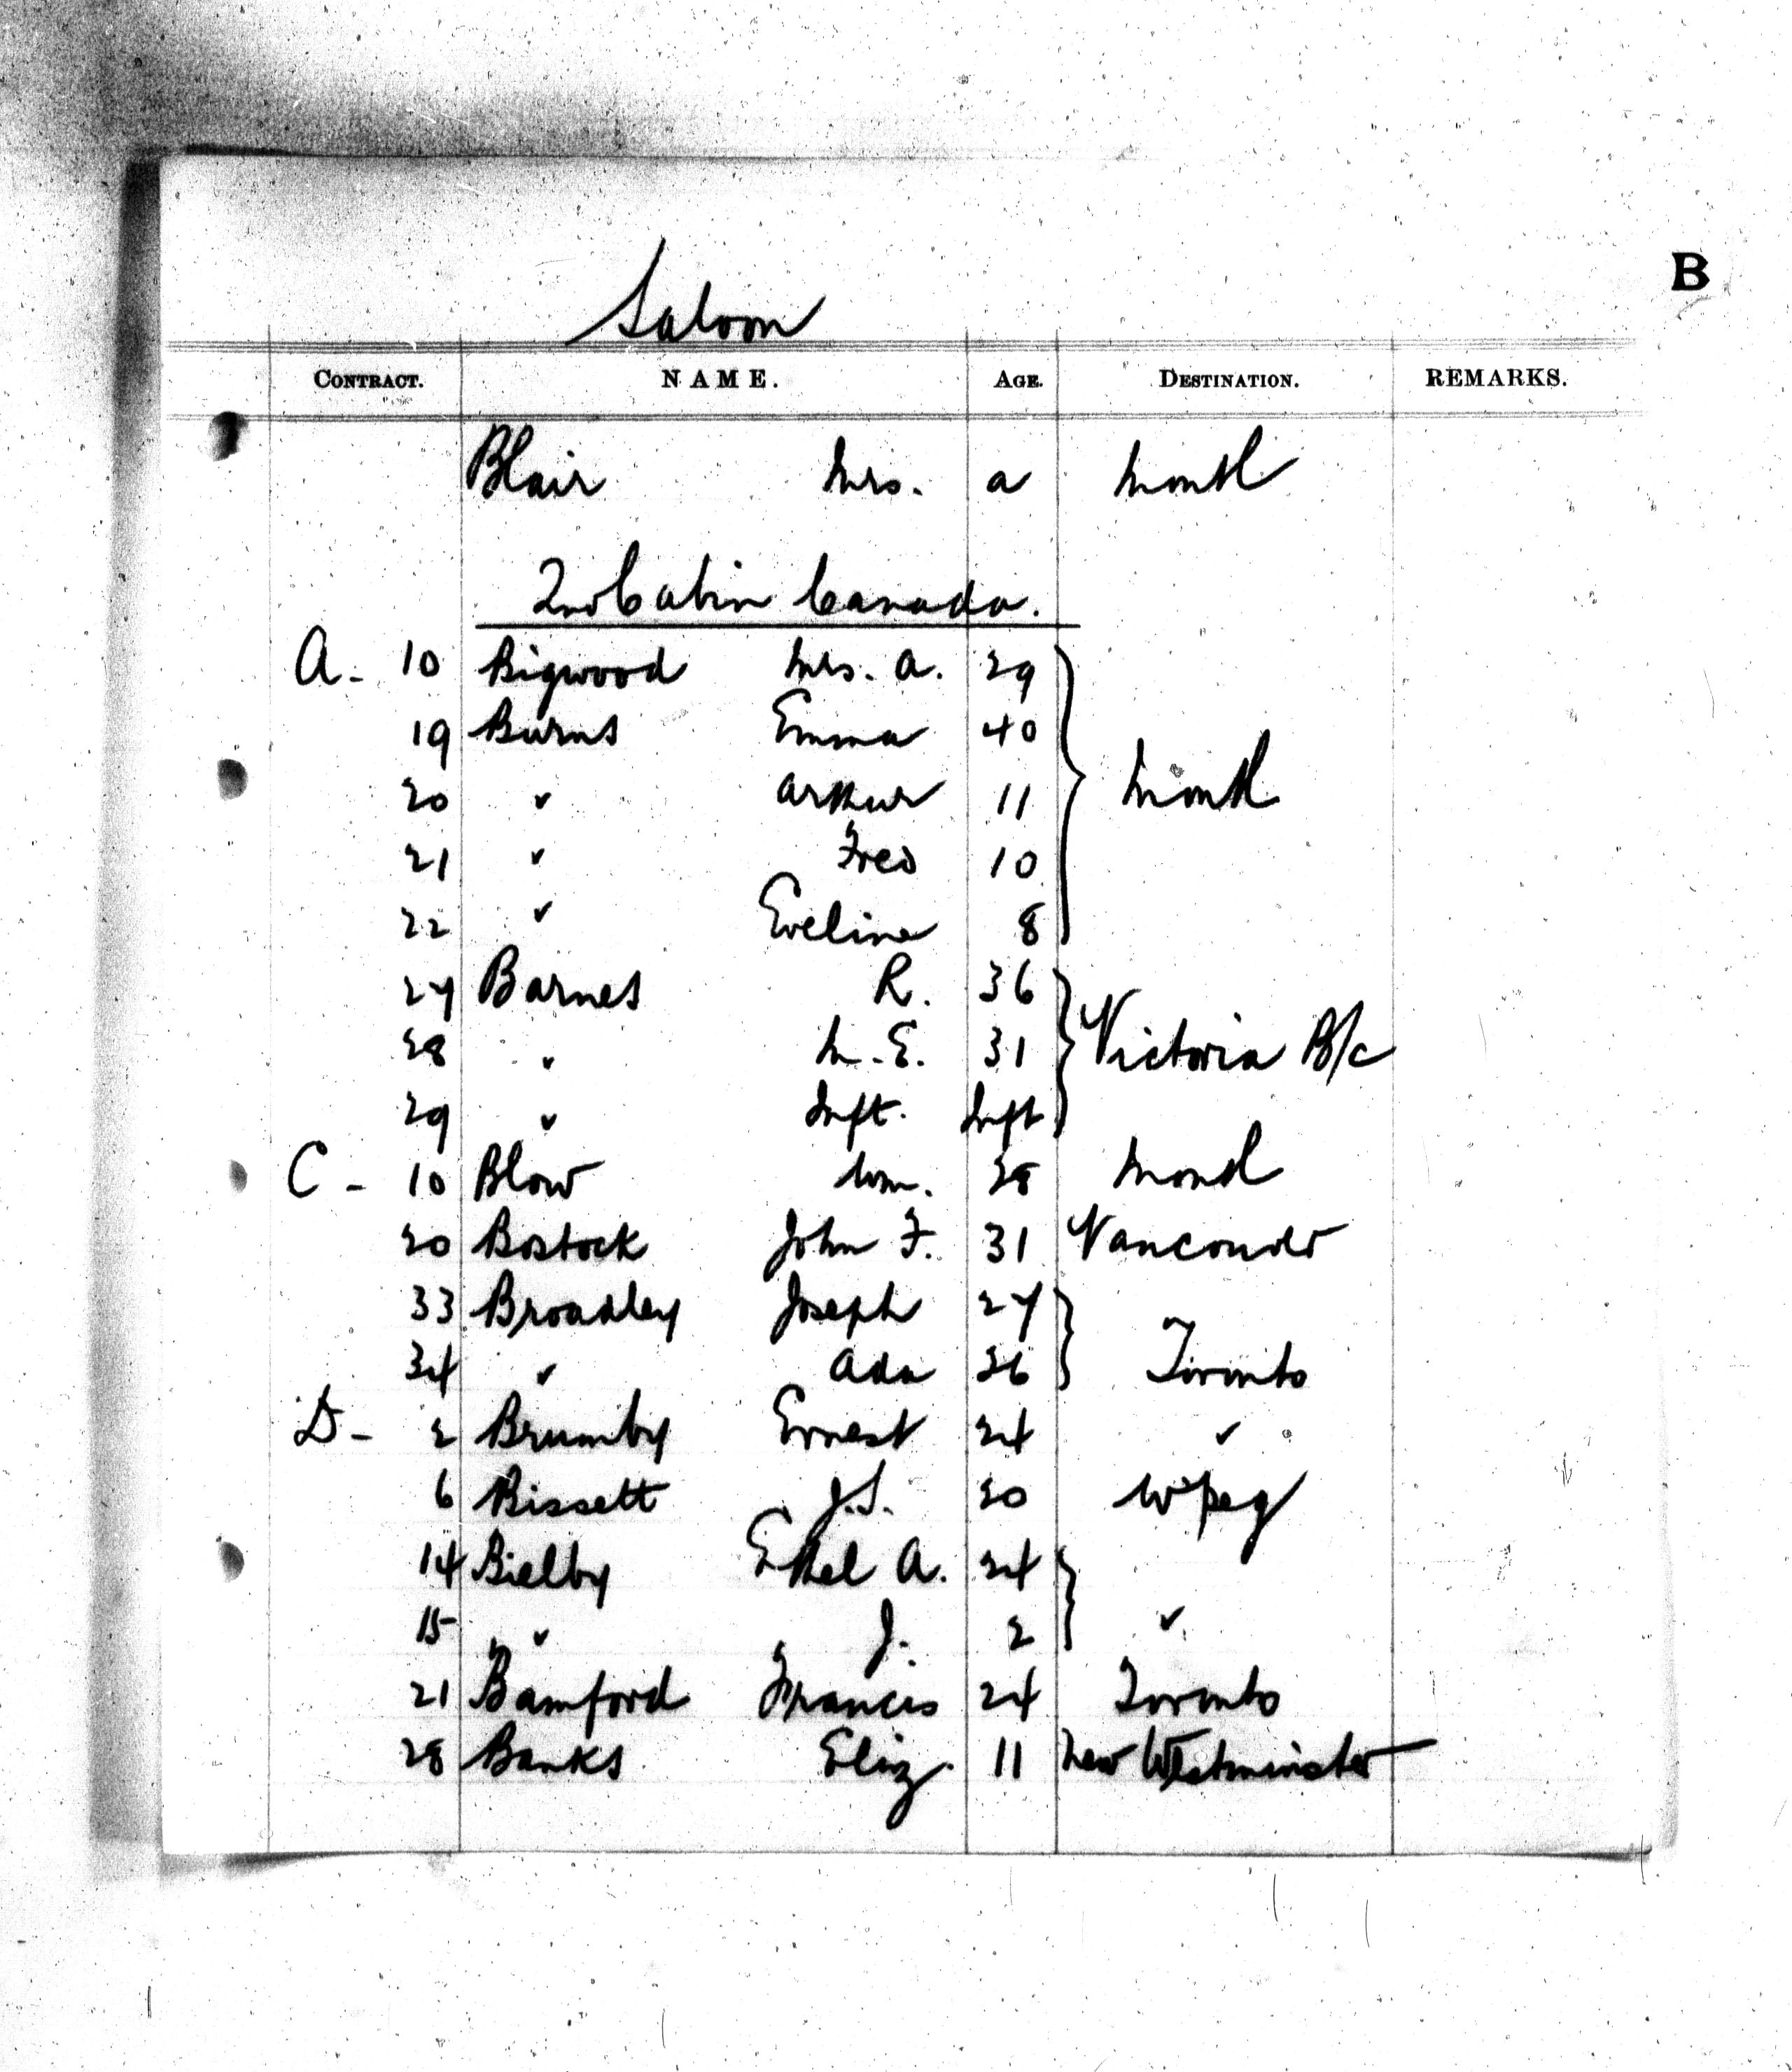 B
Saloon
CONTRACT. NAME. AGE. DESTINATION. REMARKS.
Blair Mrs. a Montl
2nd Cabin Canada.
A - 10 Bigwood Mrs. A. 29
19 Burns Emma 40
20 " Arthur 11 Montl
21 " Fred 10
22 " Eveline 8
27 Barnes R. 36
28 " M.E. 31 Victoria B/c
29 " Inft. Inft
C - 10 Blow Wm. 28 Montl
20 Bostock John F. 31 Vancouver
33 Broadley Joseph 27
34 " Ada 26 Toronto
D - 2 Brumby Ernest 24 "
6 Bissett J.S. 20 W'peg
14 Bielby Ethel A. 24
15 " J. 2 "
21 Bamford Francis 24 Toronto
28 Banks Eliz. 11 New Westminster